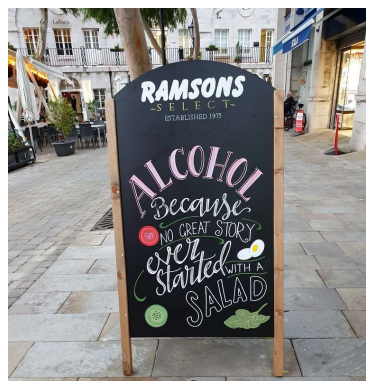 RAMSONS
~SELECT~
ESTABLISHED 1975
ALCOHOL
Because
NO GREAT STORY
ever
started WITH A
SALAD